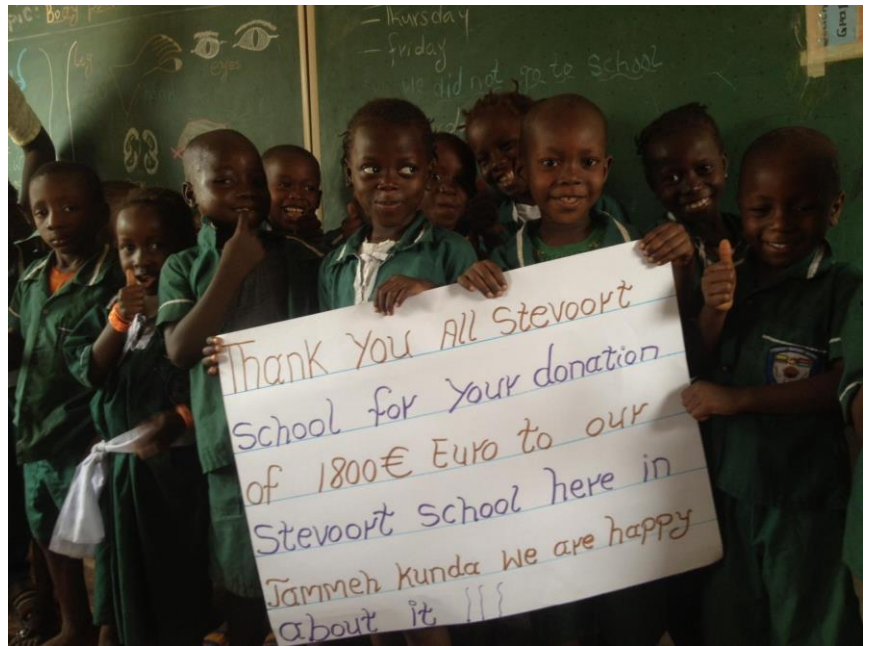 Topic: Body pa
leg
eyes
— Thursday
— friday
we did not go to school
Thank You All Stevoort
school for your donation
of 1800€ Euro to our
Stevoort school here in
Jammeh Kunda we are happy
about it !!!